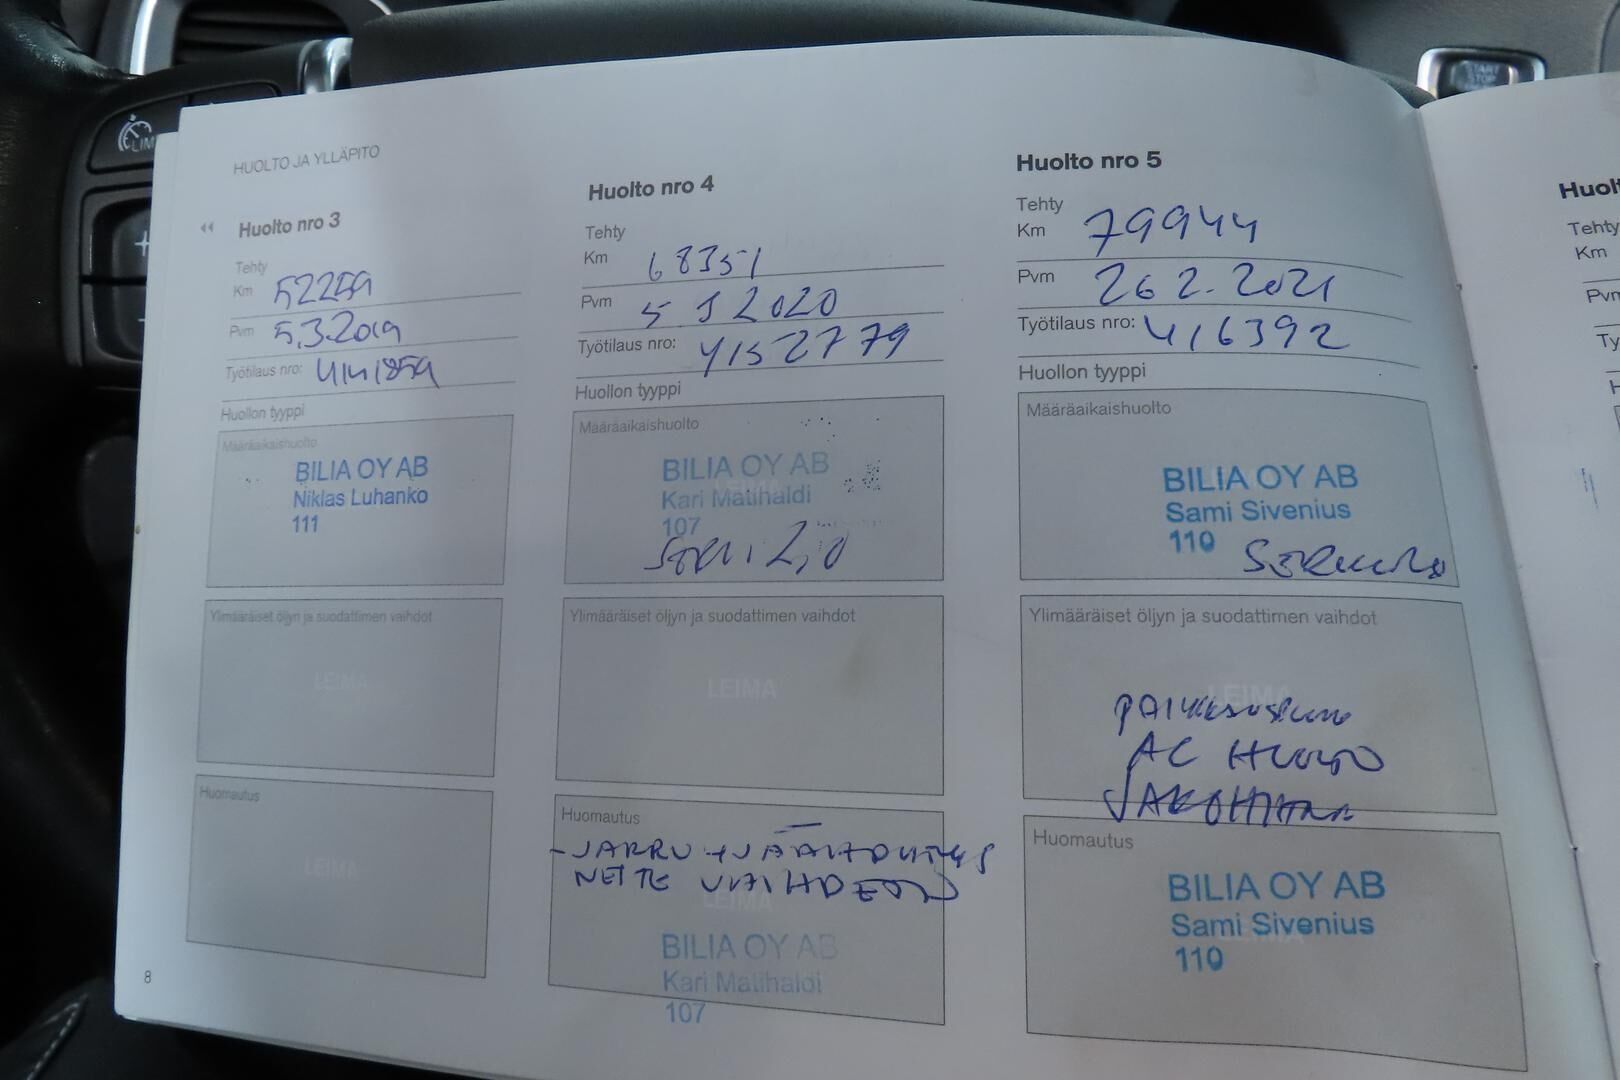 HUOLTO JA YLLÄPITO
Huolto nro 3
Tehty
Km 52259
Pvm 5.3.2019
Työtilaus nro: 4141859
Huollon tyyppi
Määräaikaishuolto
BILIA OY AB
Niklas Luhanko
111
Ylimääräiset öljyn ja suodattimen vaihdot
LEIMA
Huomautus
LEIMA
8
Huolto nro 4
Tehty
Km 68351
Pvm 5 3 2020
Työtilaus nro: 4152779
Huollon tyyppi
Määräaikaishuolto
BILIA OY AB
Kari Matihaldi
107
Ylimääräiset öljyn ja suodattimen vaihdot
LEIMA
Huomautus
- JARRU + JÄÄHDYTYS
NESTE VAIHDETTU
LEIMA
BILIA OY AB
Kari Matihaldi
107
Huolto nro 5
Tehty
Km 79944
Pvm 26 2. 2021
Työtilaus nro: 416392
Huollon tyyppi
Määräaikaishuolto
BILIA OY AB
Sami Sivenius
110
Ylimääräiset öljyn ja suodattimen vaihdot
LEIMA
AC HUOLTO
JAKOHIHNA
Huomautus
BILIA OY AB
Sami Sivenius
110
Huolt
Tehty
Km
Pvm
Ty
START
STOP
LIM